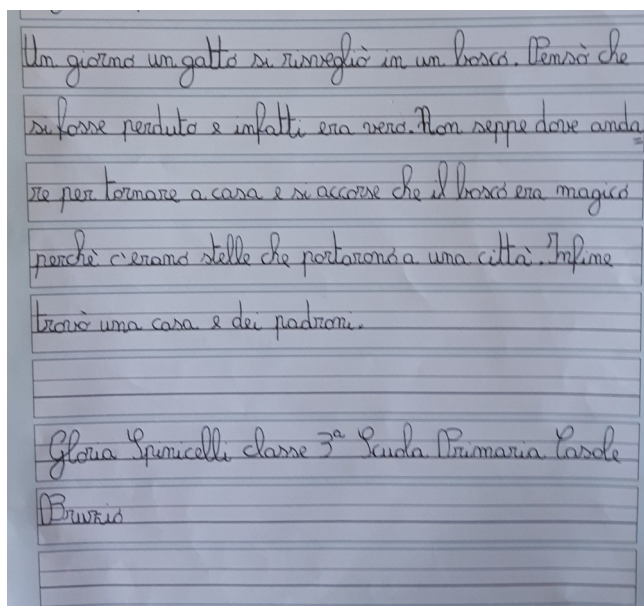 Un giorno un gatto si risvegliò in un bosco. Pensò che
si fosse perduto e infatti era vero. Non seppe dove anda=
re per tornare a casa e si accorse che il bosco era magico
perchè c'erano stelle che portarono a una città. Infine
trovò una casa e dei padroni.
Gloria Spinicelli classe 3ª Scuola Primaria Casole
Bruzio